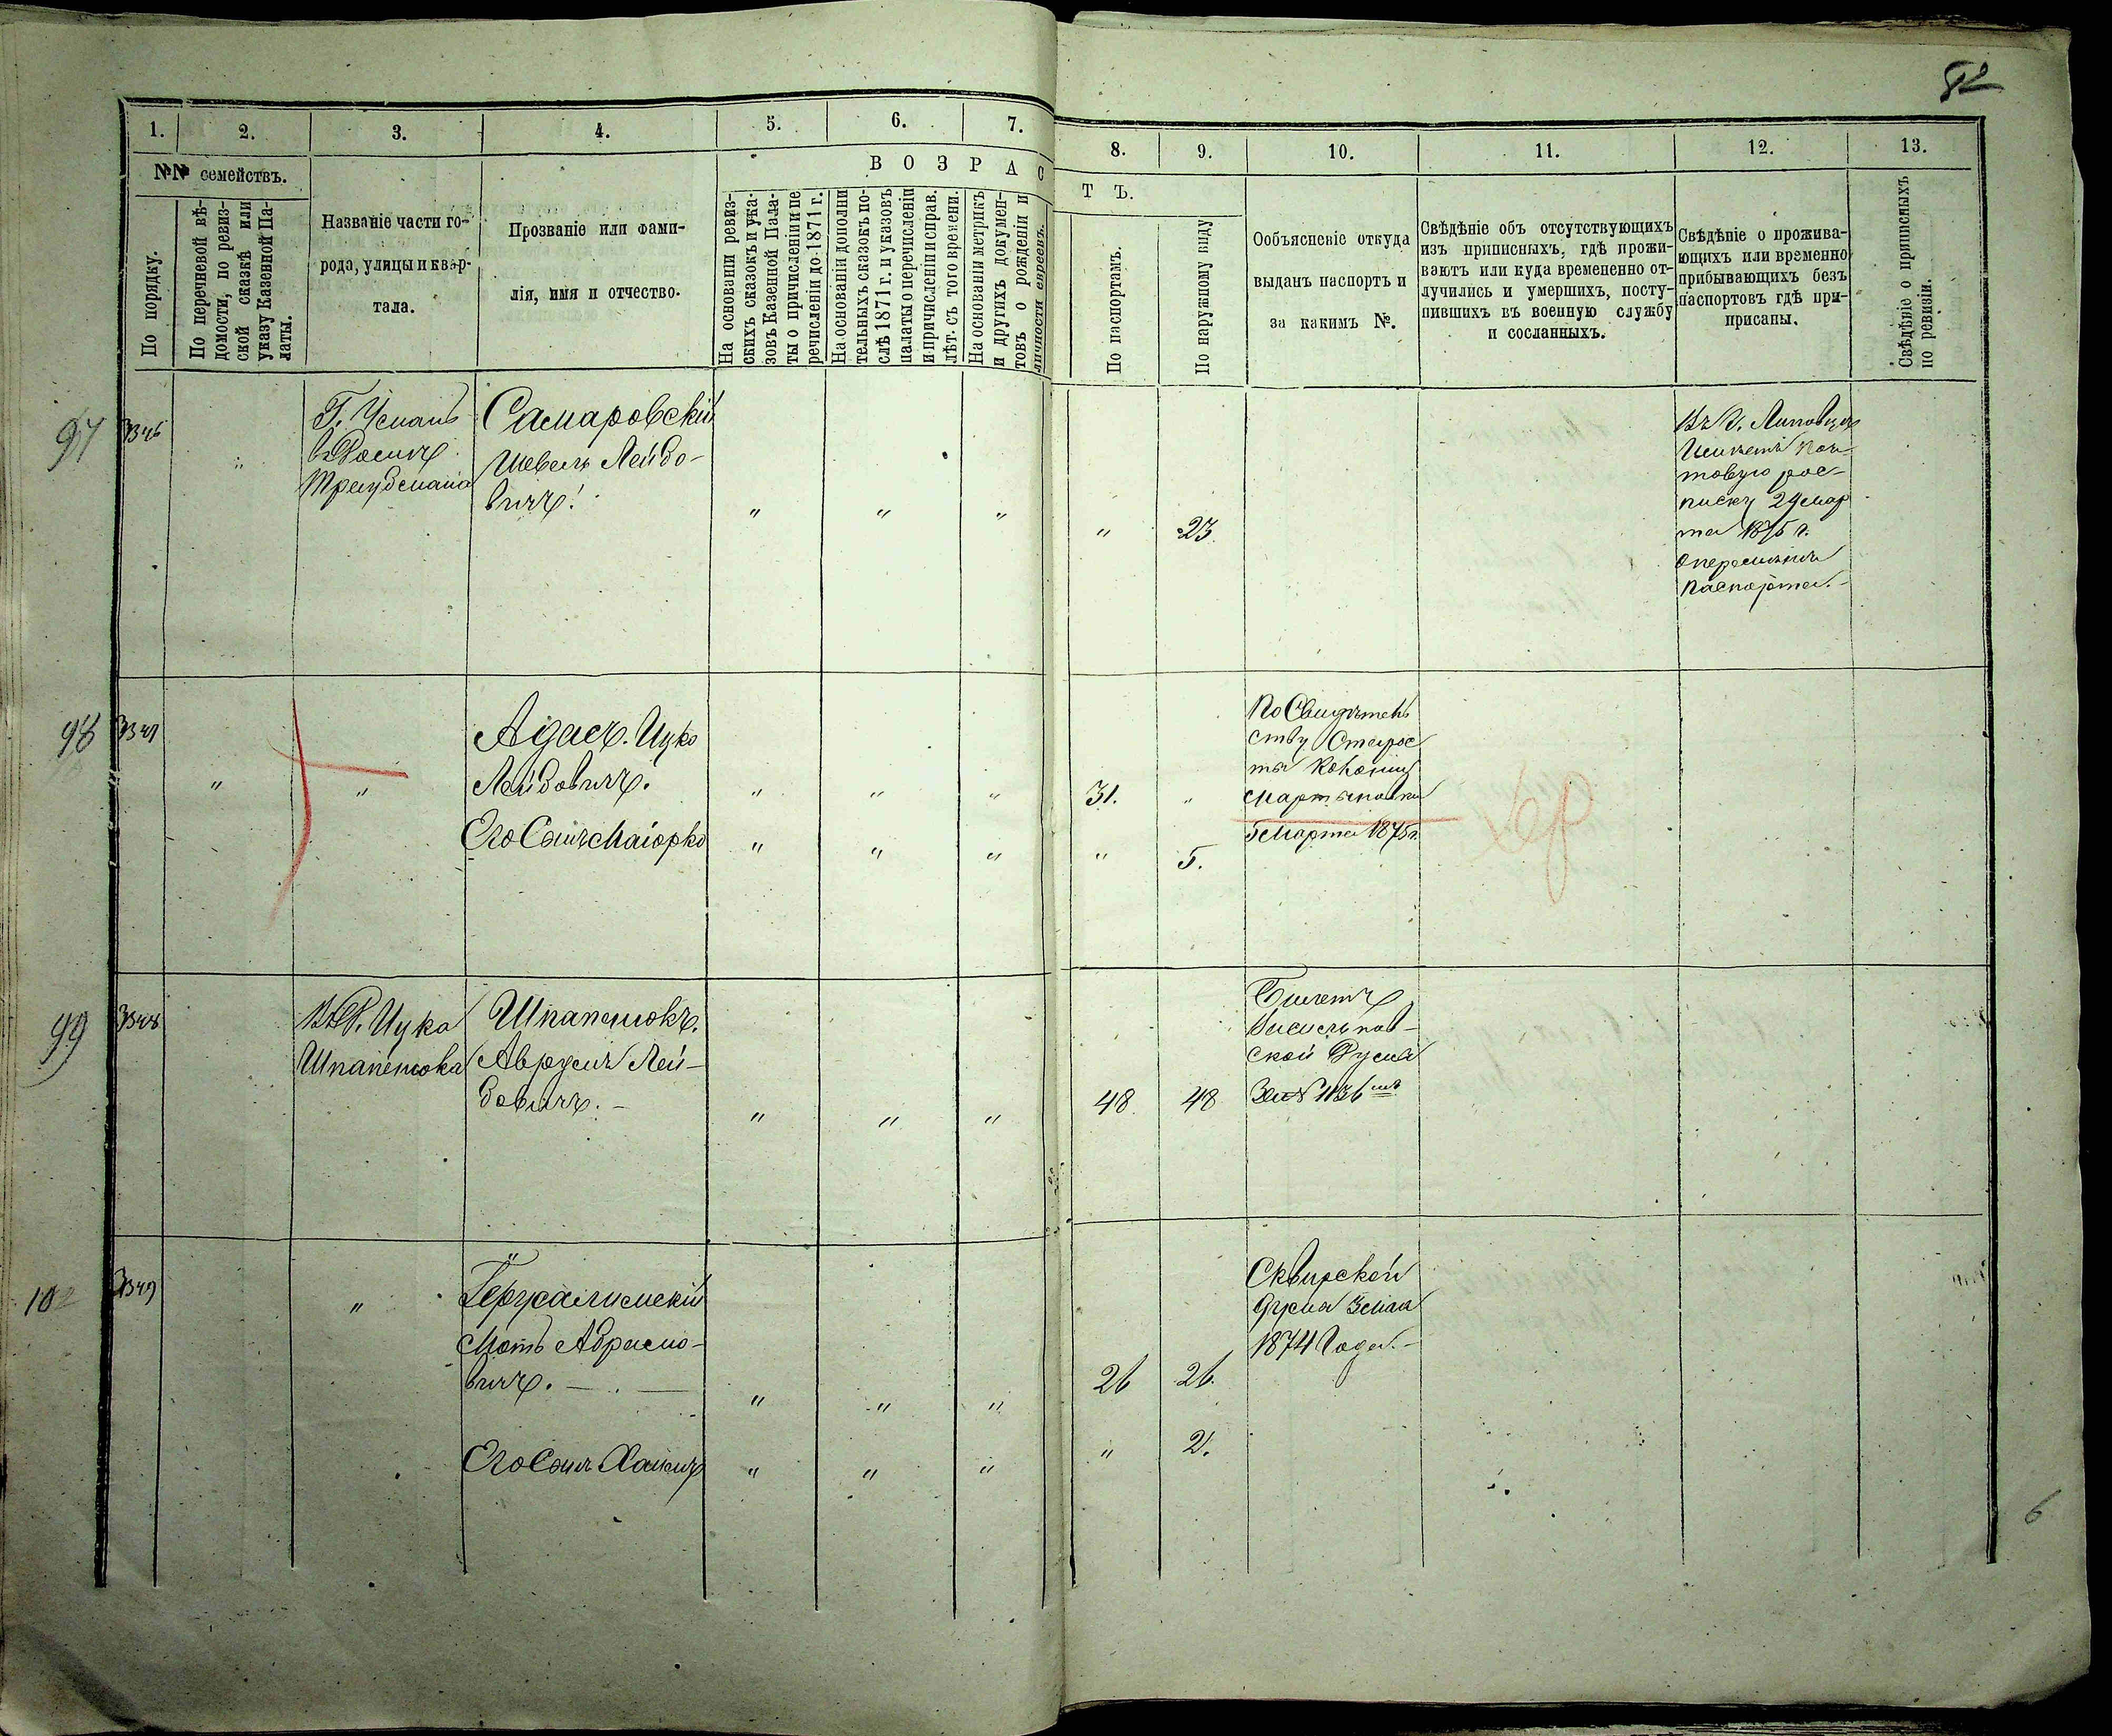 52
1. 2. 3. 4. 5. 6. 7.
8. 9. 10. 11. 12. 13.
№№ семействъ.
В О З Р А С
Т Ъ.
По порядку.
По перечневой вѣ-
домости, по ревиз-
ской сказкѣ или
указу Казенной Па-
латы.
Названіе части го-
рода, улицы и квар-
тала.
Прозваніе или фами-
лія, имя и отчество.
На основаніи ревиз-
скихъ сказокъ и ука-
зовъ Казенной Пала-
ты о причисленіи и пе
речисленіи до 1871 г.
На основаніи дополни
тельныхъ сказокъ по-
слѣ 1871 г. и указовъ
палаты о перечисленіи
и причисленіи и справ.
лѣт. съ того времени.
На основаніи метрикъ
и другихъ докумен-
товъ о рожденіи и
личности евреевъ.
По паспортамъ.
По наружному виду
Ообъясненіе откуда
выданъ паспортъ и
за какимъ №.
Свѣдѣніе объ отсутствующихъ
изъ приписныхъ, гдѣ прожи-
ваютъ или куда временно от-
лучились и умершихъ, посту-
пившихъ въ военную службу
и сосланныхъ.
Свѣдѣніе о прожива-
ющихъ или временно
прибывающихъ безъ
паспортовъ гдѣ при-
присаны.
Свѣдѣніе о приписныхъ
по ревизіи.
97
"
Г. Умань
Самаровскій
Шевель Лейбо-
вичъ.
" " "
" 23
Въ Г. Липовцѣ
Имѣетъ поч-
товую рос-
писку 24 мар
та 1875 г.
паспорта.-
98
" "
Адасъ. Ицко
Лейбовичъ.
" " "
31. "
Его Сынъ Маіорко
" " "
" 5.
По Свидѣтель
ству Старос
ты Колоніи
5 Марта 1875 г.
99
Ицка
Шпапенюка
Шпапенюкъ.
Аврумъ Лей-
бовичъ.-
" " "
48 48
Билетъ
ской Думы
100
"
Іерусалимскій
Моть Абрамо-
вичъ.
" " "
26 26.
Сквирской
Дума
1874 Года.-
Его Сынъ Хаимъ
" " "
" 2.
6